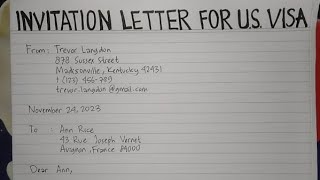 INVITATION LETTER FOR U.S. VISA
From: Trevor Langdon
878 Sussex Street
Madisonville, Kentucky 42431
+ (173) 456-789
trevor.langdon@gmail.com
November 24, 2023
To : Ann Rice
43 Rue Joseph Vernet
Avignon, France 84000
Dear Ann,